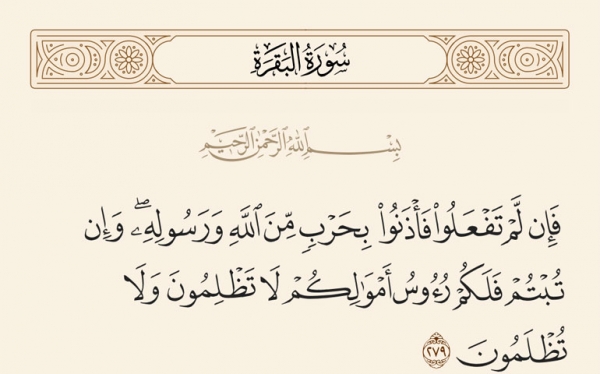 سُورَةُ البَقَرَةِ
بِسْمِ ٱللَّهِ ٱلرَّحْمَٰنِ ٱلرَّحِيمِ
فَإِن لَّمْ تَفْعَلُوا۟ فَأْذَنُوا۟ بِحَرْبٍ مِّنَ ٱللَّهِ وَرَسُولِهِۦ ۖ وَإِن
تُبْتُمْ فَلَكُمْ رُءُوسُ أَمْوَٰلِكُمْ لَا تَظْلِمُونَ وَلَا
تُظْلَمُونَ ٢٧٩